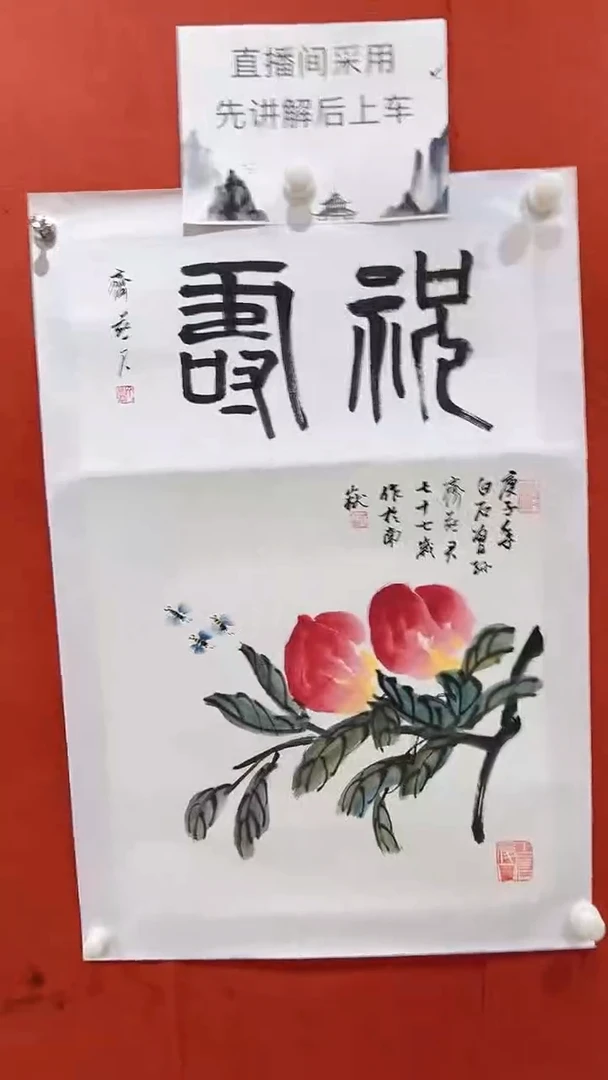 直播间采用
先讲解后上车
祝壽
齊燕君
庚子年
白石曾孙
齊燕君
七十七歲
作於南
嶽